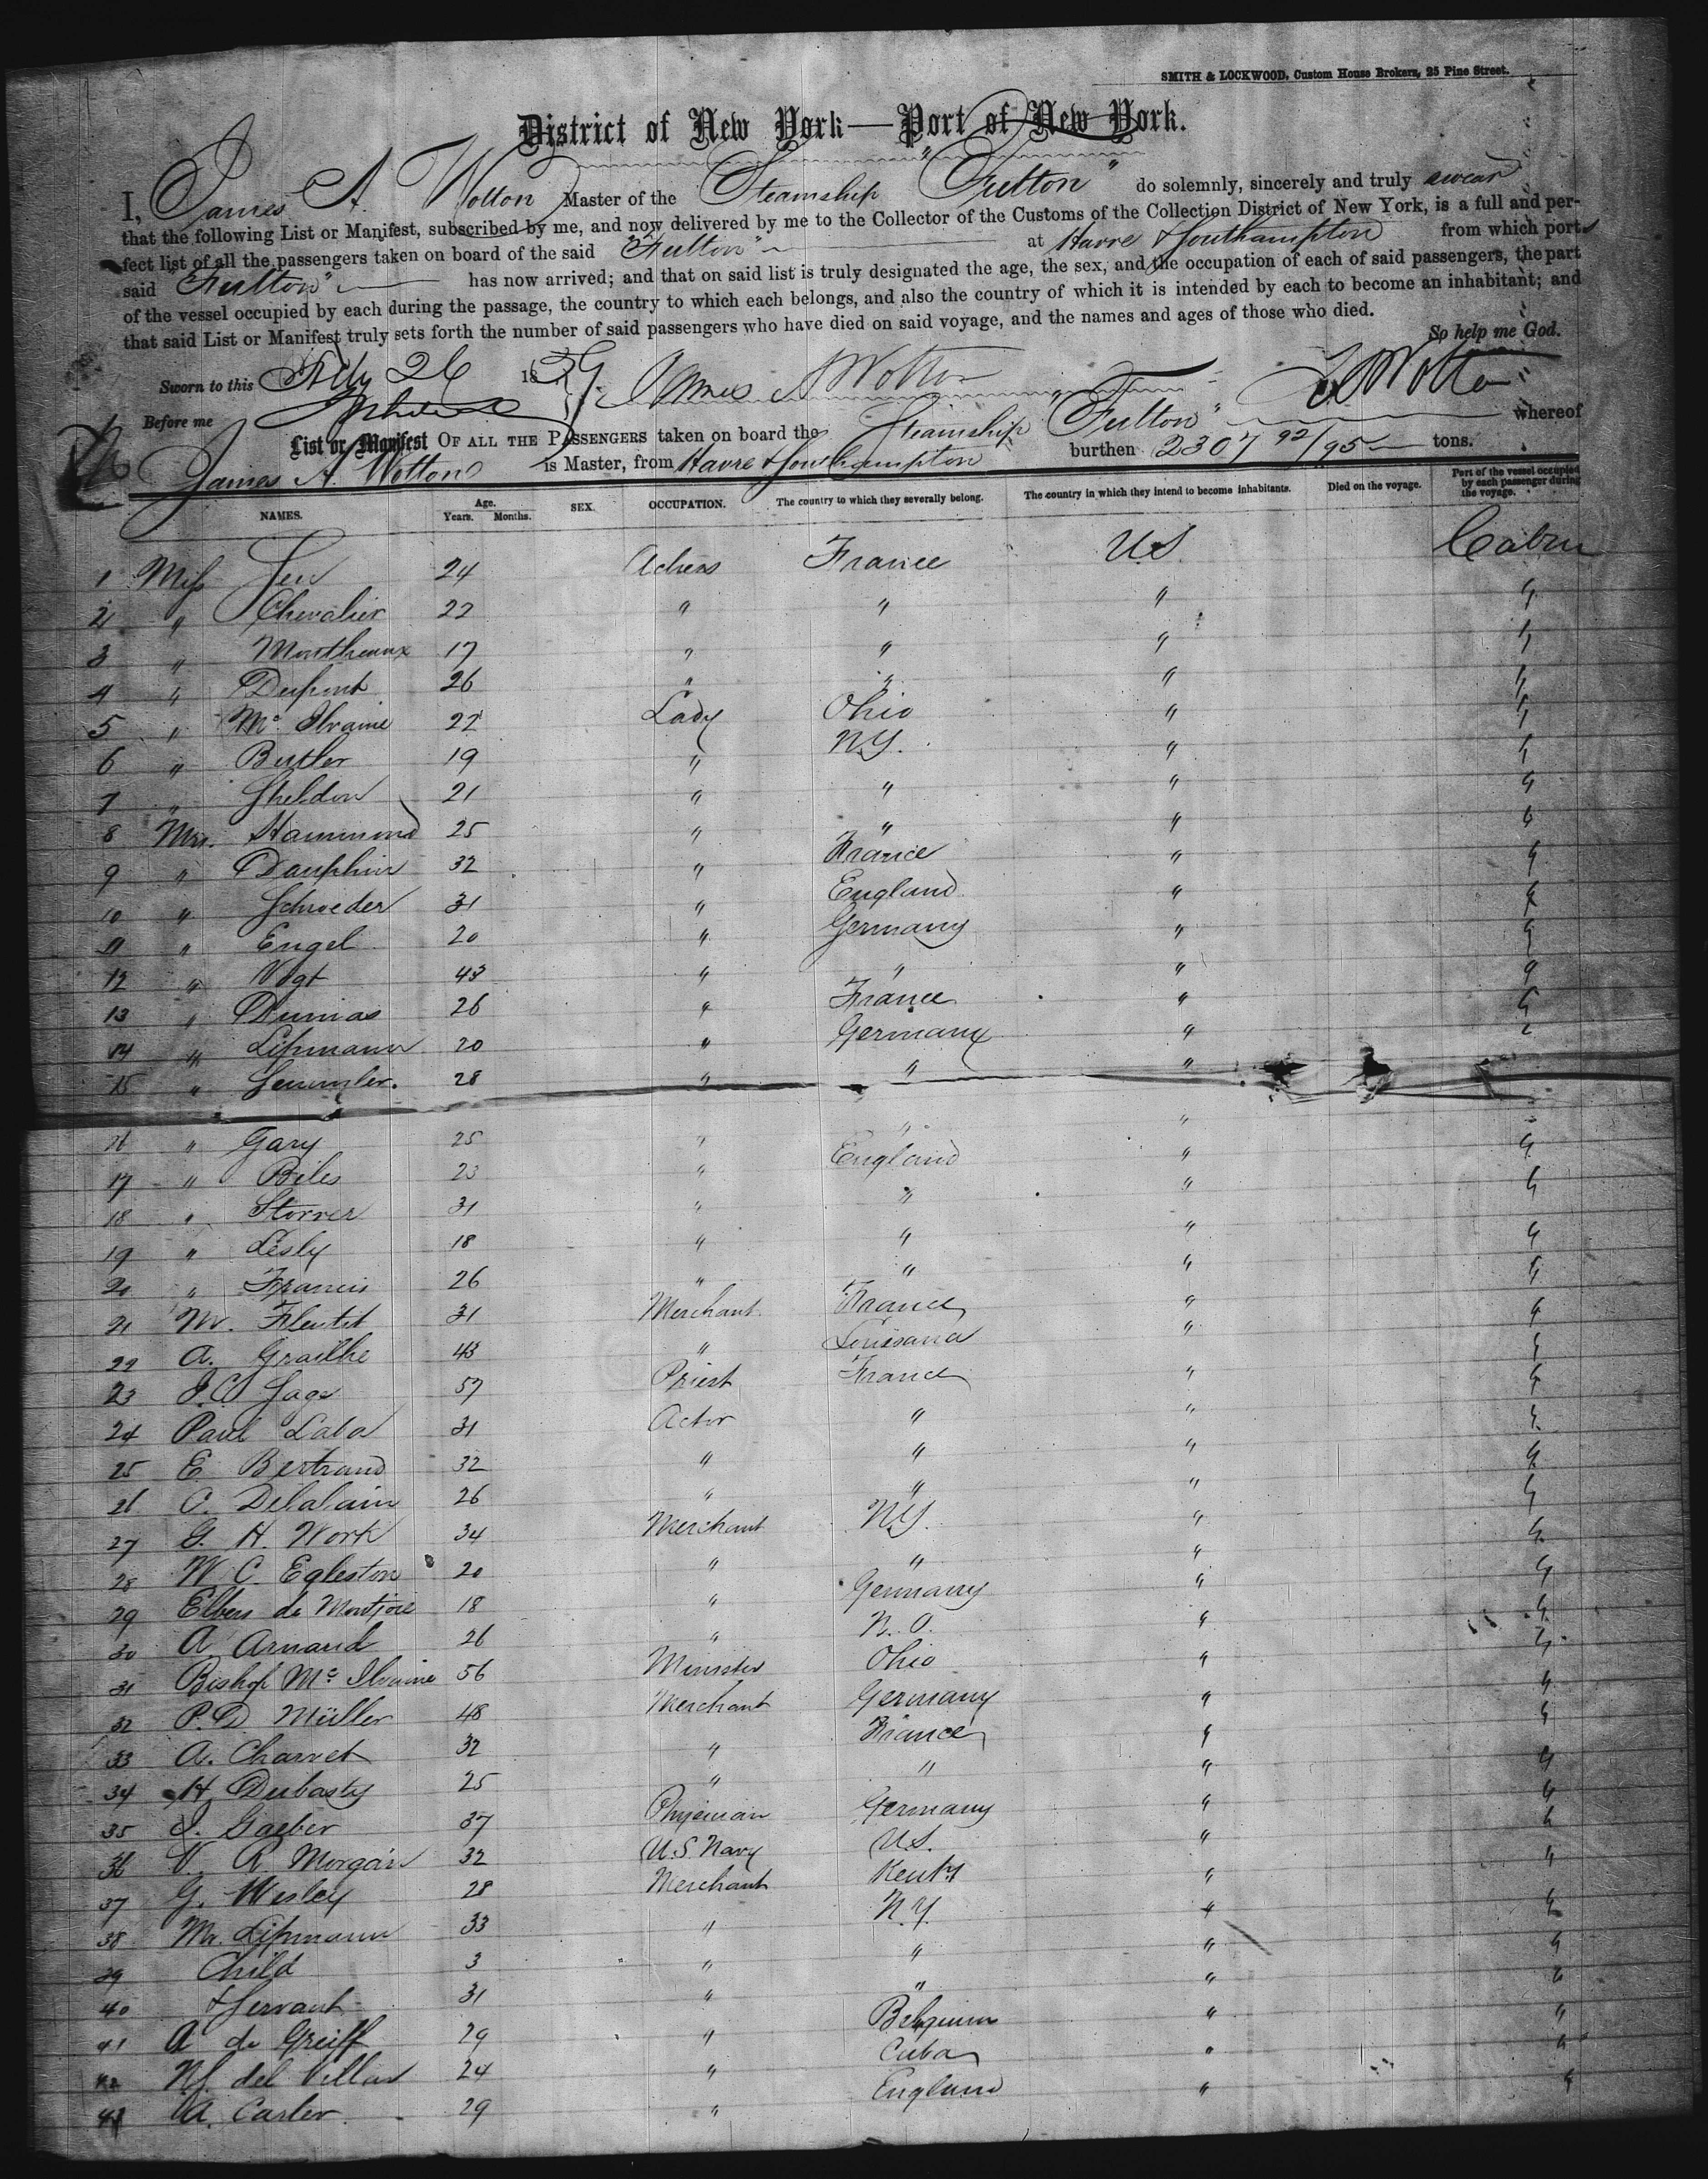 SMITH & LOCKWOOD, Custom House Brokers, 25 Pine Street.
District of New York—Port of New York.
I, James A. Wotton Master of the Steamship "Fulton" do solemnly, sincerely and truly swear
that the following List or Manifest, subscribed by me, and now delivered by me to the Collector of the Customs of the Collection District of New York, is a full and per-
fect list of all the passengers taken on board of the said "Fulton" at Havre & Southampton from which ports
said "Fulton" has now arrived; and that on said list is truly designated the age, the sex, and the occupation of each of said passengers, the part
of the vessel occupied by each during the passage, the country to which each belongs, and also the country of which it is intended by each to become an inhabitant; and
that said List or Manifest truly sets forth the number of said passengers who have died on said voyage, and the names and ages of those who died.
So help me God.
Sworn to this 26 1859 James A Wotton J A Wotton
Before me
List or Manifest OF ALL THE PASSENGERS taken on board the Steamship "Fulton" whereof
James A. Wotton is Master, from Havre & Southampton burthen 2307 92/95 tons.
NAMES. Age. Years. Months. SEX. OCCUPATION. The country to which they severally belong. The country in which they intend to become inhabitants. Died on the voyage. Part of the vessel occupied by each passenger during the voyage.
1 Miss 24 Actress France U.S. Cabin
2 " Chevalier 22 " " " "
3 " 17 " " " "
4 " Dupont 26 " " " "
5 " Mc Ilvaine 22 Lady Ohio " "
6 " Butler 19 " N.Y. " "
7 " Sheldon 21 " " " "
8 Mrs. Hammond 25 " " " "
9 " Dauphin 32 " France " "
10 " Schroeder 31 " England " "
11 " Engel 20 " Germany " "
12 " Vogt 43 " " " "
13 " Dumas 26 " France " "
14 " Lipmann 20 " Germany " "
15 " 28 " " "
16 " Gary 25 " " " "
17 " Biles 23 " England " "
18 " Storrer 31 " " " "
19 " Lesly 18 " " " "
20 " Francis 26 " " " "
21 M. 31 Merchant France " "
22 A. Grailhe 43 " Louisiana " "
23 57 Priest France " "
24 Paul Laba 31 Actor " " "
25 E. Bertrand 32 " " " "
26 C. Delalain 26 " " " "
27 G. H. Work 34 Merchant N.Y. " "
28 W. C. Egleston 20 " " " "
29 Elbers de Montjoie 18 " Germany " "
30 A Arnaud 26 " N.O. " "
31 Bishop Mc Ilvaine 56 Minister Ohio " "
32 P. D. Müller 48 Merchant Germany " "
33 A. Charvet 32 " France " "
34 H Dubasty 25 " " " "
35 37 Physician Germany " "
36 V. R. Morgan 32 U.S. Navy U.S. " "
37 G. Wesley 28 Merchant Kenty " "
38 Mr. Lipmann 33 " N.Y. " "
39 Child 3 " " " "
40 & Servant 31 " " " "
41 A de Greiff 29 " Belgium " "
42 del Villar 24 " Cuba " "
43 A. Carter 29 " England " "